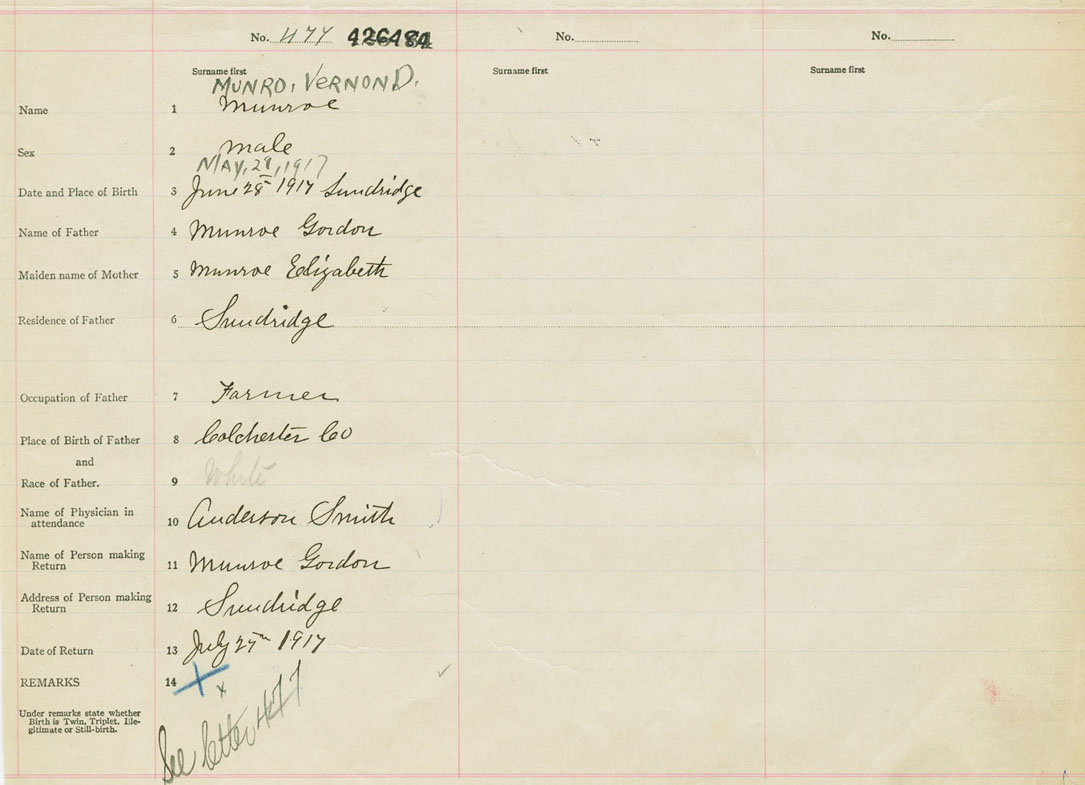 No. 477 426484 No. No.
Surname first Surname first Surname first
MUNRO, VERNON D.
Name 1 Munroe
Sex 2 male
MAY, 28, 1917
Date and Place of Birth 3 June 28 1917 Sundridge
Name of Father 4 Munroe Gordon
Maiden name of Mother 5 Munroe Elizabeth
Residence of Father 6 Sundridge
Occupation of Father 7 Farmer
Place of Birth of Father 8 Colchester Co
and
Race of Father. 9 White
Name of Physician in
attendance 10 Anderson Smith
Name of Person making
Return 11 Munroe Gordon
Address of Person making
Return 12 Sundridge
Date of Return 13 July 27th 1917
REMARKS 14
x
Under remarks state whether
Birth is Twin, Triplet, Ille-
gitimate or Still-birth.
See letter 477